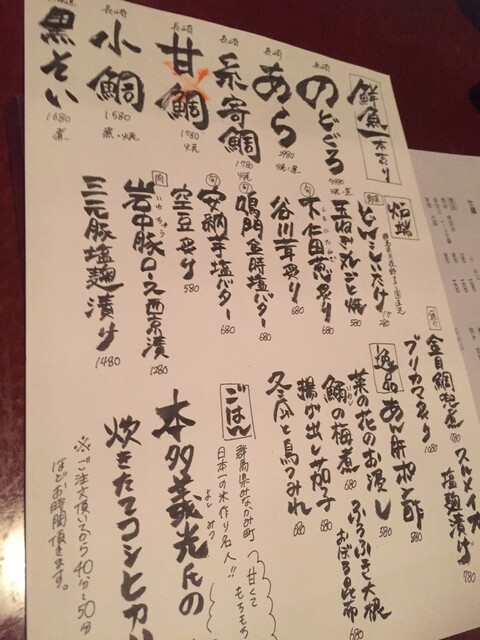 鮮魚一本売り
長崎 のどぐろ 3980 焼・煮
長崎 あら 3980 焼・煮
長崎 糸寄鯛 1780 焼
長崎 甘鯛 1780 焼
長崎 小鯛 1580 煮・焼
黒そい 1680 煮
炉端
どんこしいたけ
玉ねぎ丸ごと焼 580
旬 下仁田葱炙り 680
谷川茸炙り 680
旬 鳴門金時塩バター 680
旬 安納芋塩バター 680
空豆炙り 580
岩中豚ロース西京漬 1280
三元豚塩麹漬け 1480
金目鯛兜煮 780
スルメイカ塩麹漬け 780
ブリカマ炙り 1080
逸品
あん肝ポン酢 580
菜の花のお浸し 580
ふろふき大根おぼろ昆布 680
鰯の梅煮 680
揚げ出し茄子 680
冬瓜と鳥つみれ 680
ごはん
群馬県みなかみ町
日本一の米作り名人!!
よしみつ
本多義光氏の
炊きたてコシヒカリ
甘くて
もちもち
※ご注文頂いてから40分〜50分
ほどお時間頂きます。